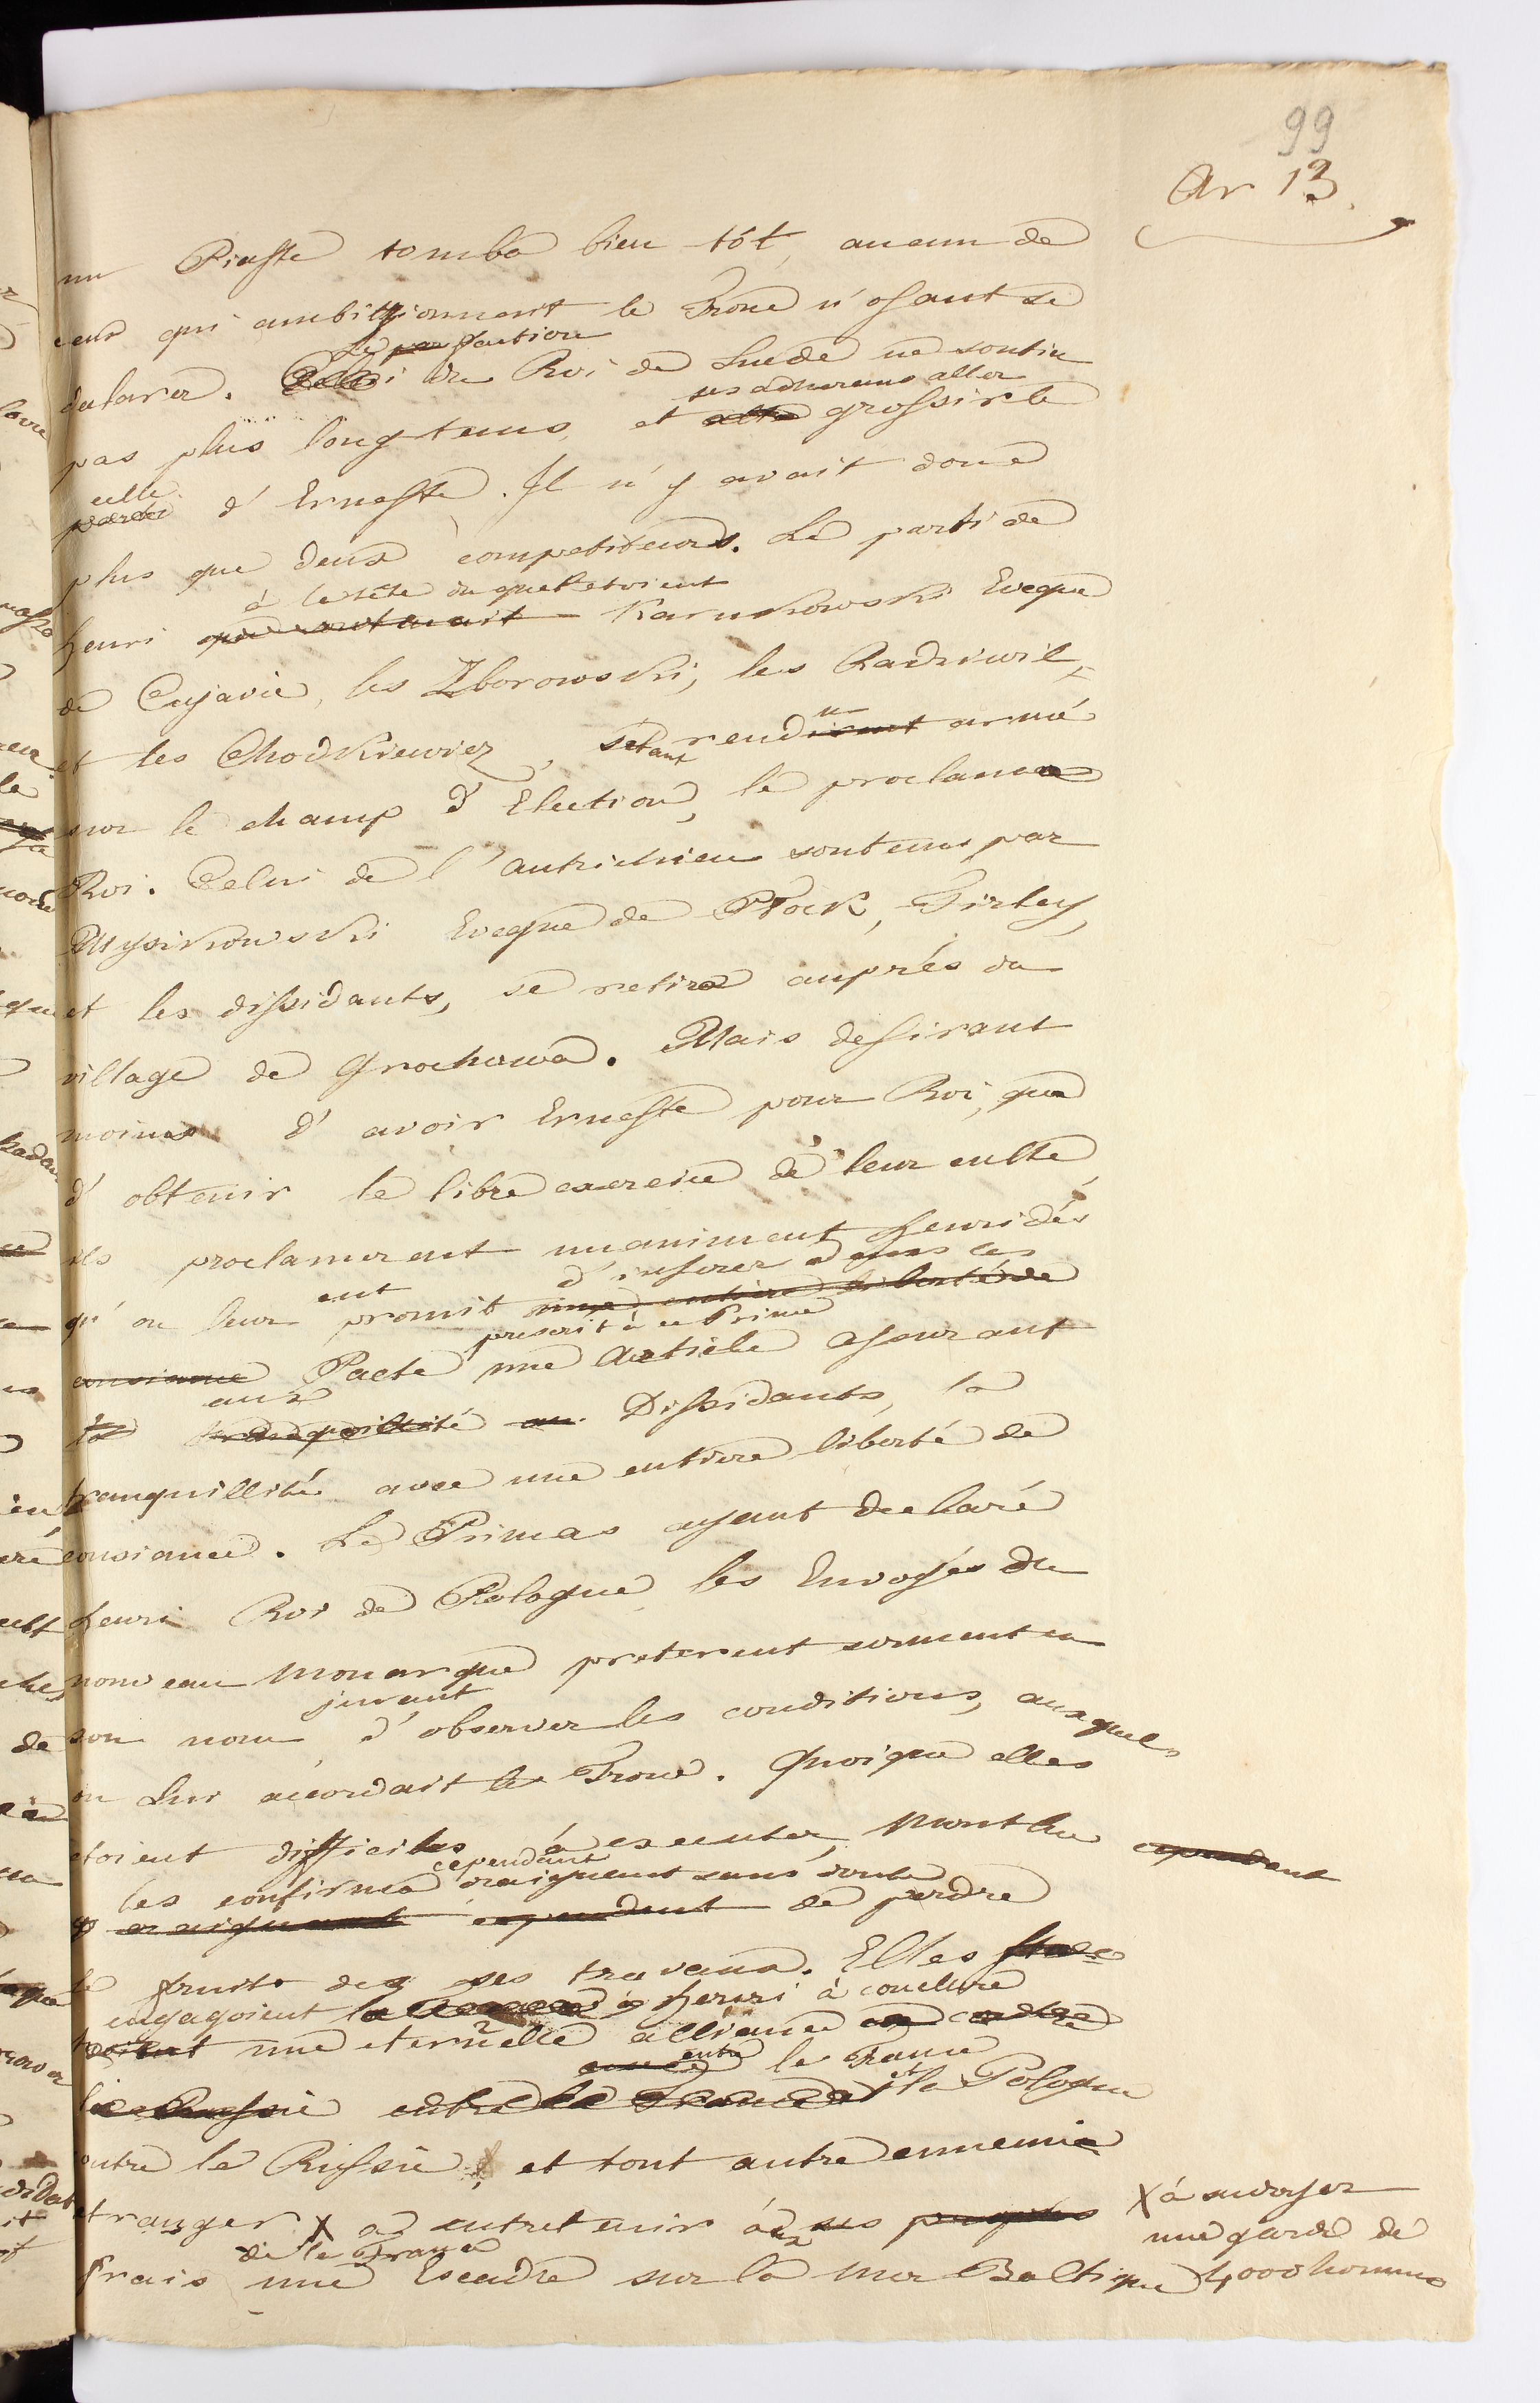 99
Ar 13.
un Piaste tomba bien tôt, aucun de
ceux qui ambitionnent le Trone n'osant se
declarer. Celui du Roi de Suede ne soutin
La faction
pas plus longtems, et alla grossir le
ses adherens aller
parti d'Erneste. Il n'y avait donc
celle
plus que deux competiteurs. Le parti de
à la tête duquel etoient
henri Karnkowski Eveque
de Cujavie, les Zborowski, les Radziwil,
et les Chodkiewicz, s'etant rendu armé
sur le champ d'Election, le proclama
Roi. Celui de l'autrichien soutenu par
Mysikowski Eveque de Plock, Firley,
et les dissidants, se retira auprés du
village de Grochowa. Mais desirant
moins d'avoir Erneste pour Roi, que
d'obtenir le libre exercice de leur culte,
ils proclamerent unanimement henri dés
qu'on leur eut promit d'inserer dans les
une entiere liberté de
conscience Pacte prescrit à ce Prince une Article assurant
la tranquillité au aux Dissidants, la
tranquillité avec une entiere liberté de
consiance. Le Primas ayant declaré
henri Roi de Pologne les Envoyés du
nouveau Monarque preterent serment en
son nom jurant d'observer les conditions, auxquels
on lui accordait le Trone. Quoique elles
étoient difficiles à executer, Montluc cependant
les confirma cependant craignent sans doute
craignant cependant de perdre
le fruit de ses travaux. Elles
engagoient henri à conclure
une eternelle alliance
entre la France
la Russie entre la France et la Pologne
contre la Russie, et tout autre ennemie
etranger X a entretenir aux ses propres
X à envoyer
une garde de
4000 hommes
frais de la France une Escadre sur la mer Baltique